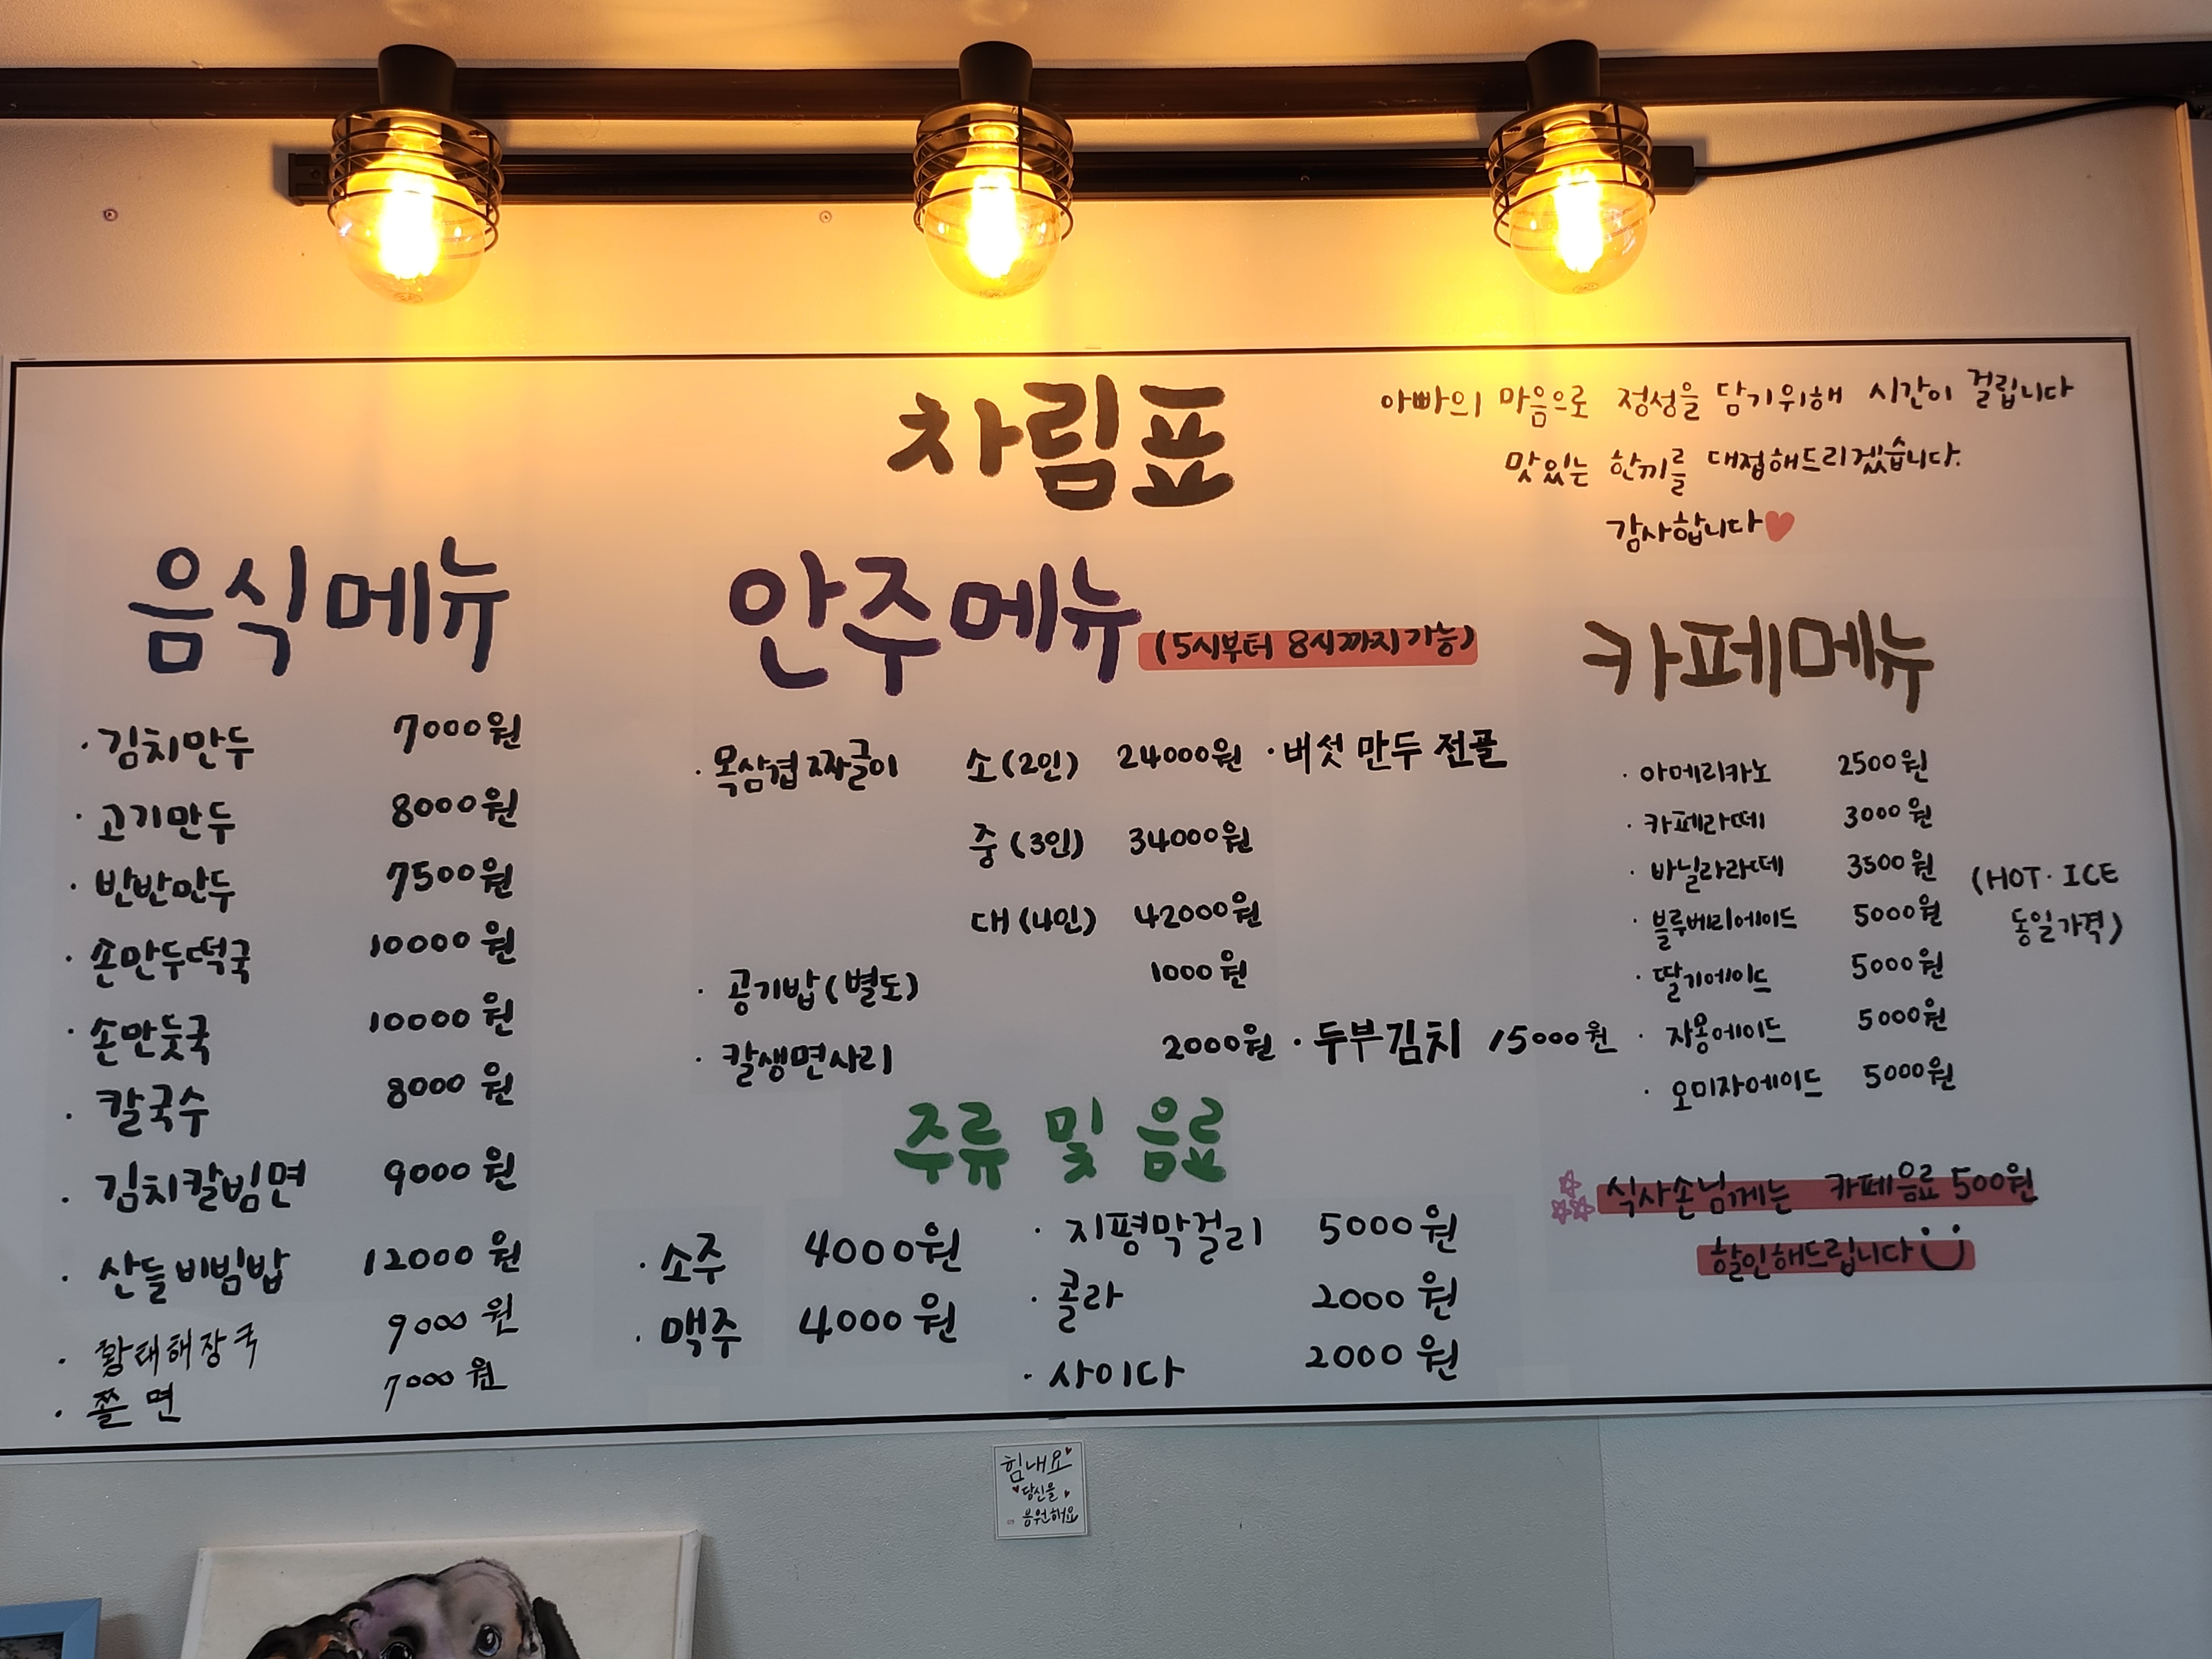 차림표
아빠의 마음으로 정성을 담기위해 시간이 걸립니다
맛있는 한끼를 대접해드리겠습니다.
감사합니다
음식메뉴
· 김치만두 7000원
· 고기만두 8000원
· 반반만두 7500원
· 손만두떡국 10000원
· 손만둣국 10000원
· 칼국수 8000원
· 김치칼빔면 9000원
· 산들비빔밥 12000원
· 황태해장국 9000원
· 쫄면 7000원
안주메뉴 (5시부터 8시까지가능)
· 목삼겹짜글이 소(2인) 24000원 · 버섯 만두 전골
중(3인) 34000원
대(4인) 42000원
· 공기밥(별도) 1000원
· 칼생면사리 2000원 · 두부김치 15000원
주류 및 음료
· 소주 4000원
· 맥주 4000원
· 지평막걸리 5000원
· 콜라 2000원
· 사이다 2000원
카페메뉴
· 아메리카노 2500원
· 카페라떼 3000원
· 바닐라라떼 3500원
· 블루베리에이드 5000원
· 딸기에이드 5000원
· 자몽에이드 5000원
· 오미자에이드 5000원
(HOT · ICE
동일가격)
식사손님께는 카페음료 500원
할인해드립니다
힘내요
당신을
응원해요